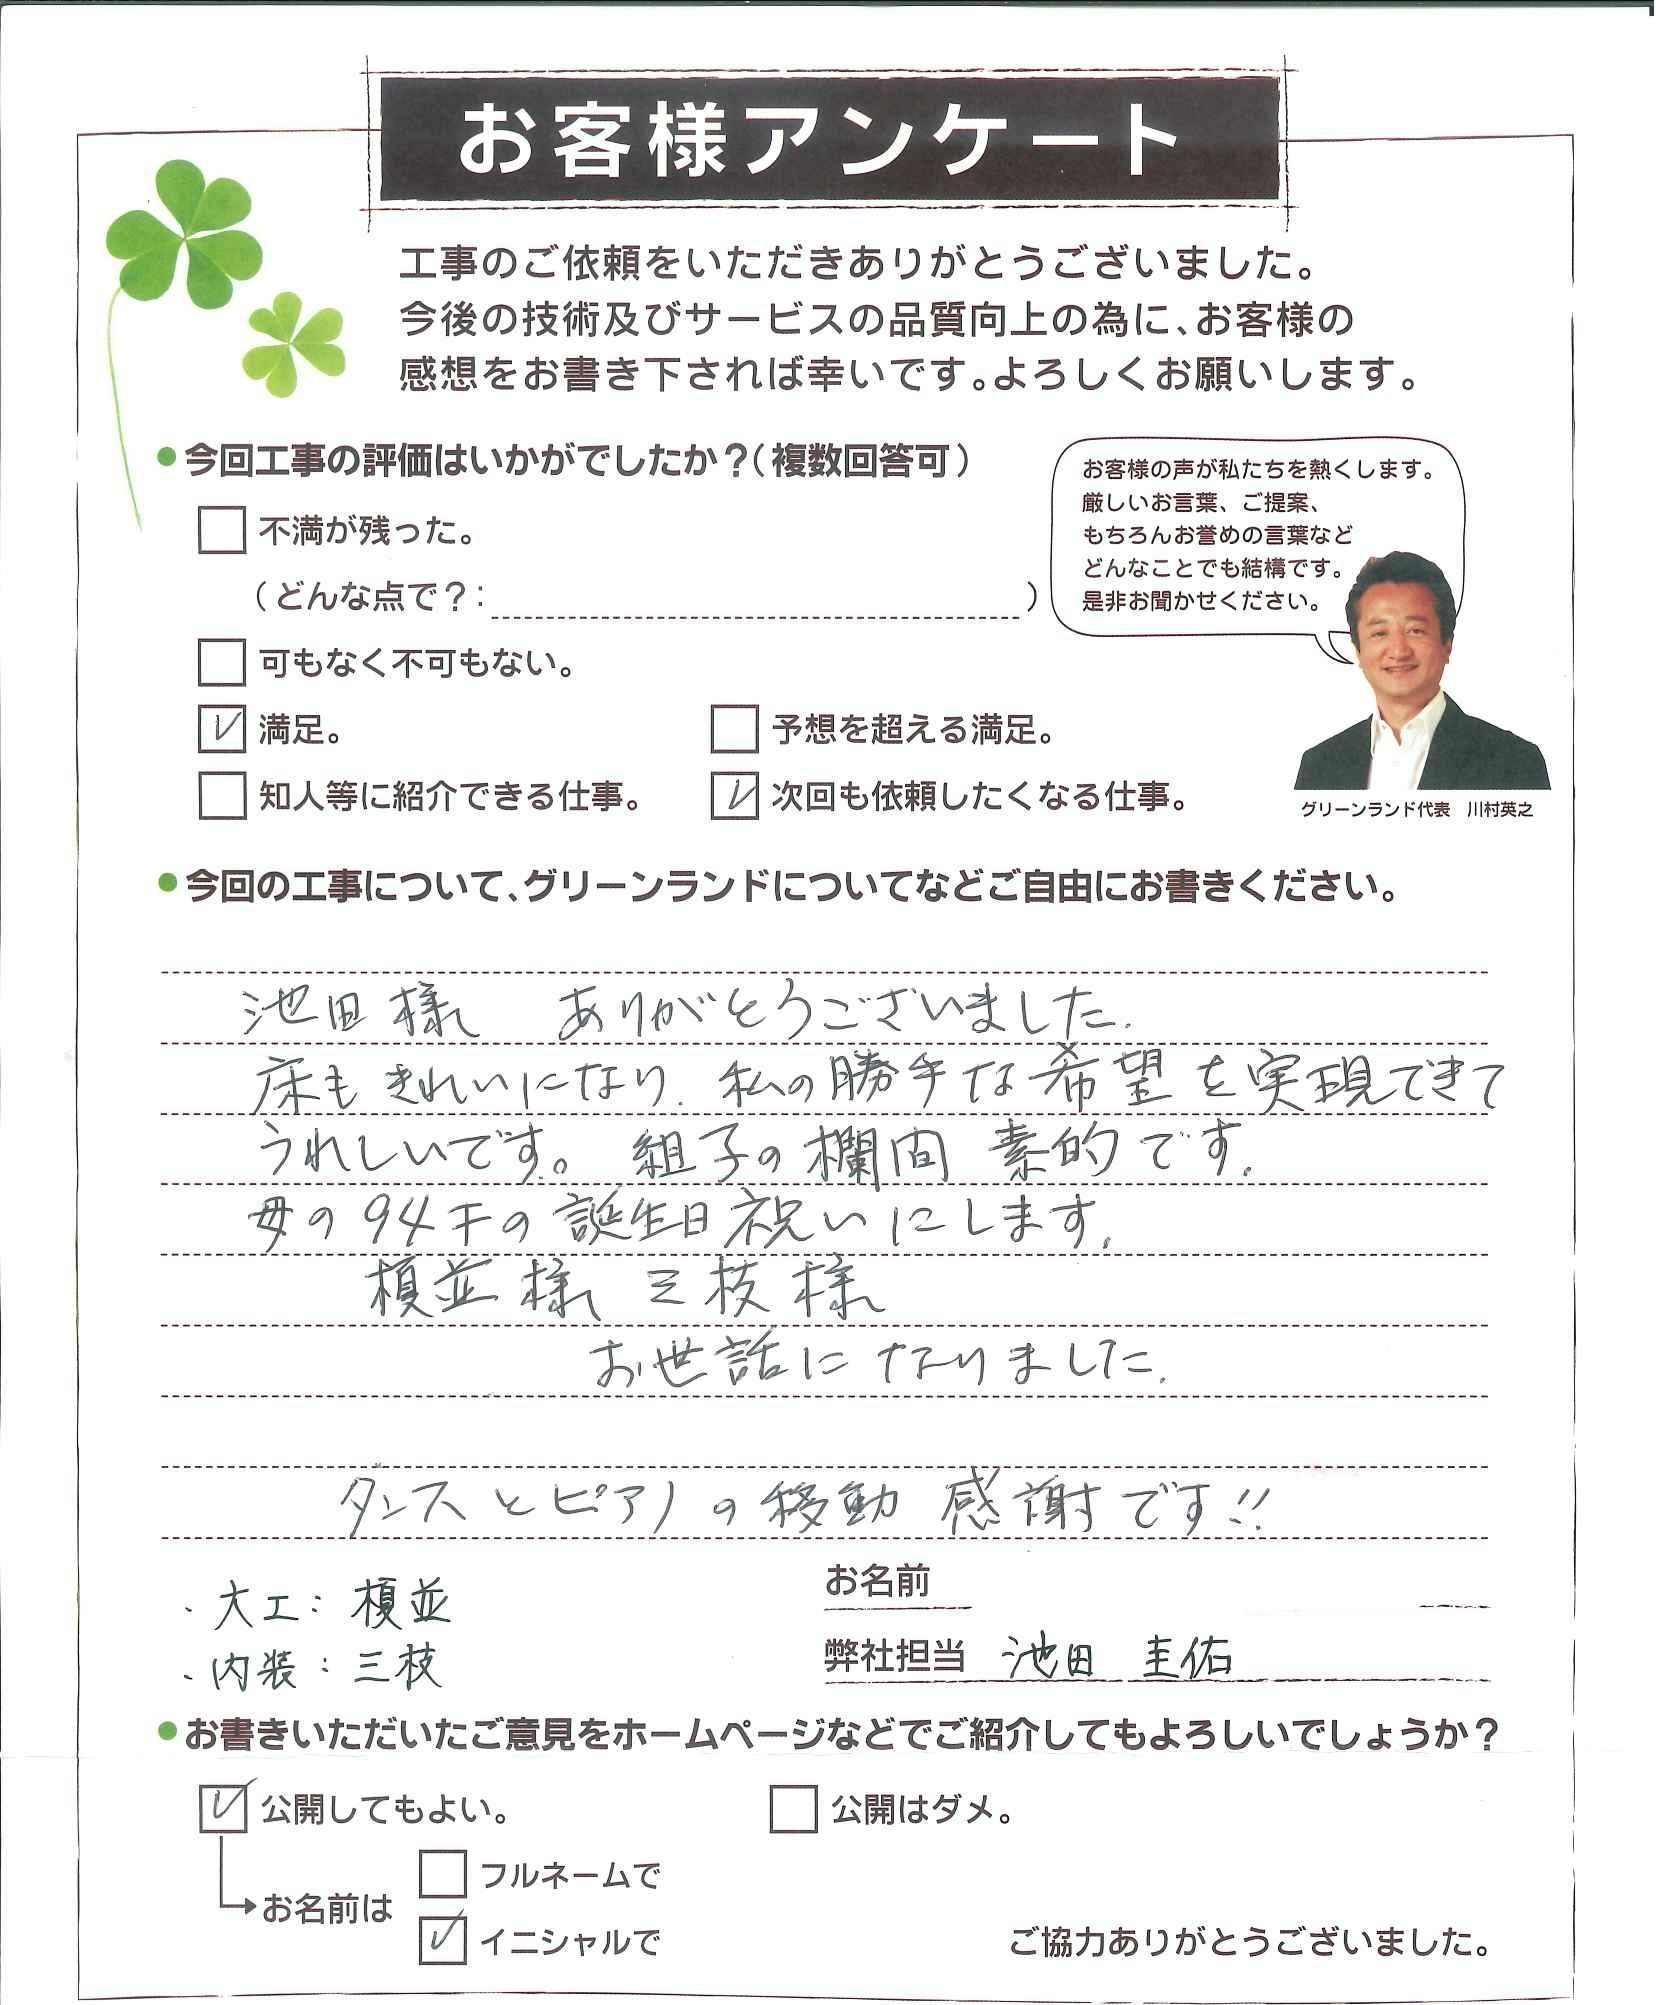 お客様アンケート
工事のご依頼をいただきありがとうございました。
今後の技術及びサービスの品質向上の為に、お客様の
感想をお書き下されば幸いです。よろしくお願いします。
●今回工事の評価はいかがでしたか？(複数回答可)
不満が残った。
(どんな点で？:　)
可もなく不可もない。
満足。
予想を超える満足。
知人等に紹介できる仕事。
次回も依頼したくなる仕事。
お客様の声が私たちを熱くします。
厳しいお言葉、ご提案、
もちろんお誉めの言葉など
どんなことでも結構です。
是非お聞かせください。
グリーンランド代表　川村英之
●今回の工事について、グリーンランドについてなどご自由にお書きください。
池田様　ありがとうございました.
床もきれいになり. 私の勝手な希望を実現できて
うれしいです。組子の欄間 素的です.
母の94才の誕生日祝いにします.
榎並様 三枝様
お世話になりました.
タンスとピアノの移動 感謝です!!
・大工：榎並
・内装：三枝
お名前
弊社担当 池田 圭佑
●お書きいただいたご意見をホームページなどでご紹介してもよろしいでしょうか？
公開してもよい。
公開はダメ。
お名前は
フルネームで
イニシャルで
ご協力ありがとうございました。